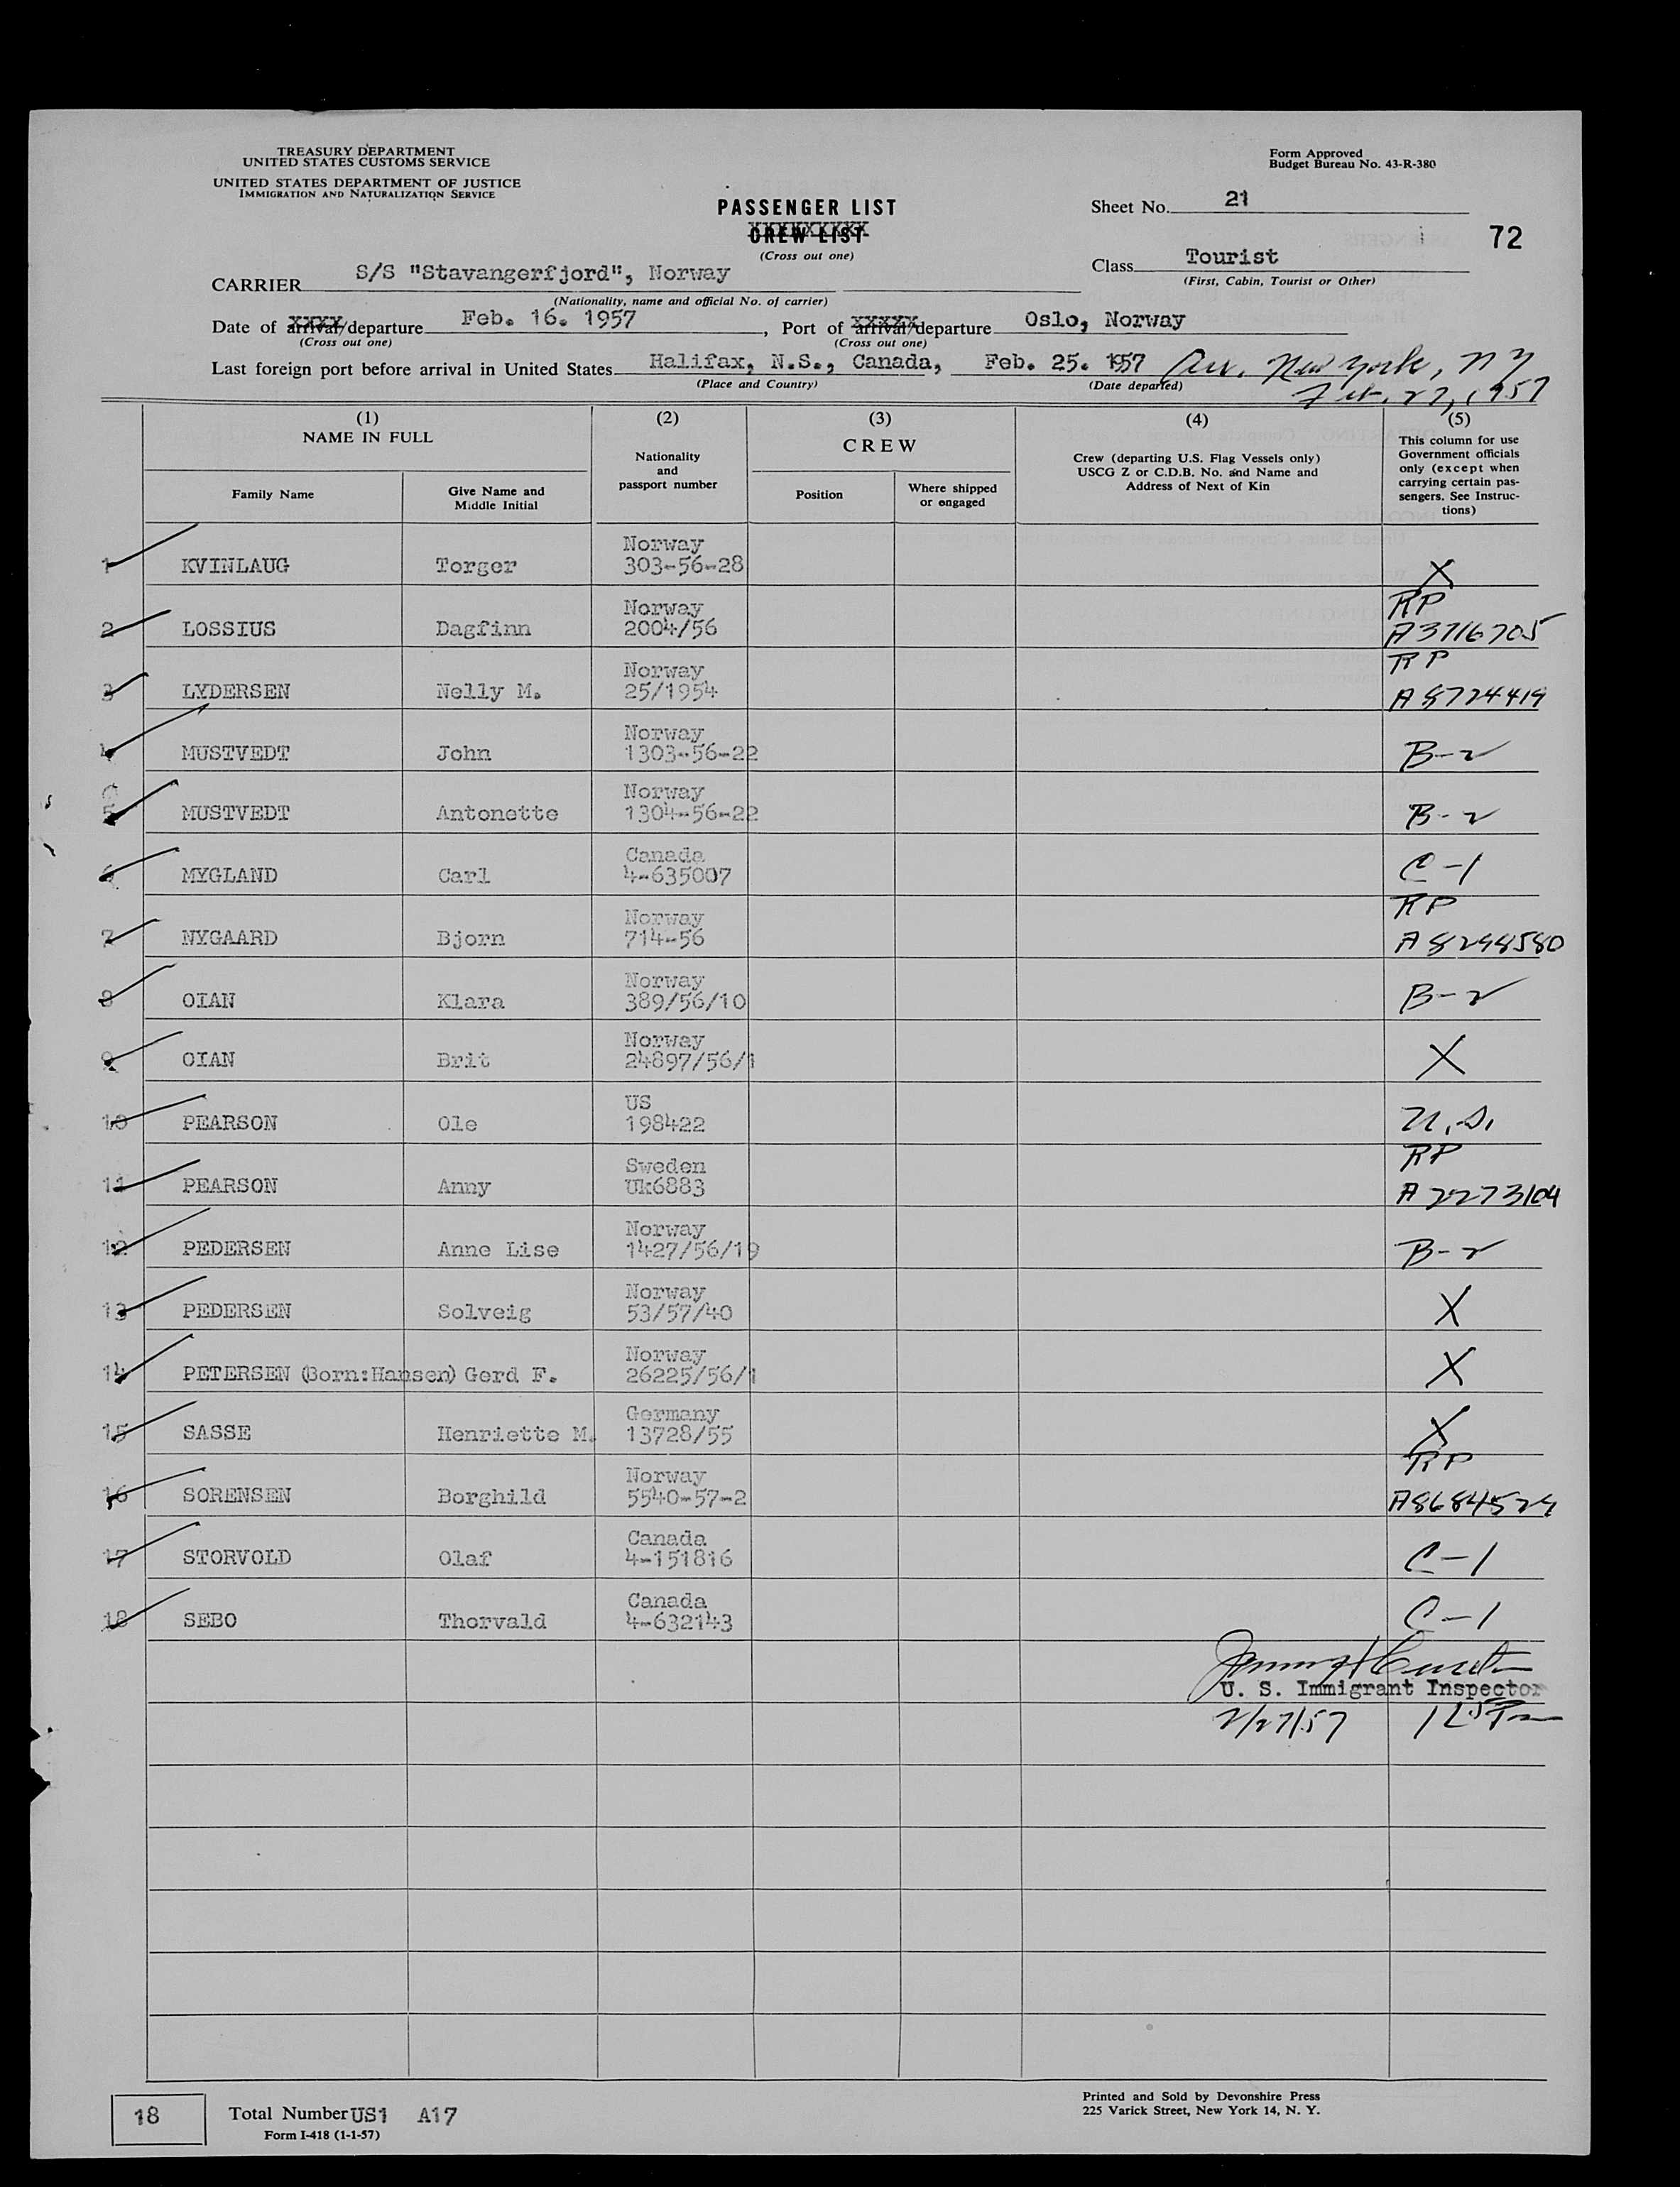 TREASURY DEPARTMENT
UNITED STATES CUSTOMS SERVICE
UNITED STATES DEPARTMENT OF JUSTICE
IMMIGRATION AND NATURALIZATION SERVICE
Form Approved
Budget Bureau No. 43-R-380
PASSENGER LIST
CREW LIST
(Cross out one)
Sheet No. 21
72
Class Tourist
(First, Cabin, Tourist or Other)
CARRIER S/S "Stavangerfjord", Norway
(Nationality, name and official No. of carrier)
Date of arrival/departure Feb. 16. 1957, Port of arrival/departure Oslo, Norway
(Cross out one) (Cross out one)
Last foreign port before arrival in United States Halifax, N.S., Canada, Feb. 25. 1957 Arr. New York, NY
(Place and Country) (Date departed) Feb. 27, 1957
(1) (2) (3) (4) (5)
NAME IN FULL
Nationality and passport number
CREW
Crew (departing U.S. Flag Vessels only) USCG Z or C.D.B. No. and Name and Address of Next of Kin
This column for use Government officials only (except when carrying certain passengers. See Instructions)
Family Name Give Name and Middle Initial Position Where shipped or engaged
Norway
1 KVINLAUG Torger 303-56-28 X
Norway RP
2 LOSSIUS Dagfinn 2004/56 A3716705
Norway RP
3 LYDERSEN Nelly M. 25/1954 A8724419
Norway
4 MUSTVEDT John 1303-56-22 B-2
Norway
5 MUSTVEDT Antonette 1304-56-22 B-2
Canada
6 MYGLAND Carl 4-635007 C-1
Norway RP
7 NYGAARD Bjorn 714-56 A8298580
Norway
8 OIAN Klara 389/56/10 B-2
Norway
9 OIAN Brit 24897/56/1 X
US
10 PEARSON Ole 198422 U.S.
Sweden RP
11 PEARSON Anny Uk6883 A2273104
Norway
12 PEDERSEN Anne Lise 1427/56/19 B-2
Norway
13 PEDERSEN Solveig 53/57/40 X
Norway
14 PETERSEN (Born:Hansen) Gerd F. 26225/56/1 X
Germany
15 SASSE Henriette M. 13728/55 X
Norway RP
16 SORENSEN Borghild 5540-57-2 A8684529
Canada
17 STORVOLD Olaf 4-151816 C-1
Canada
18 SEBO Thorvald 4-632143 C-1
U. S. Immigrant Inspector
2/27/57
18 Total Number US1 A17
Form I-418 (1-1-57)
Printed and Sold by Devonshire Press
225 Varick Street, New York 14, N. Y.